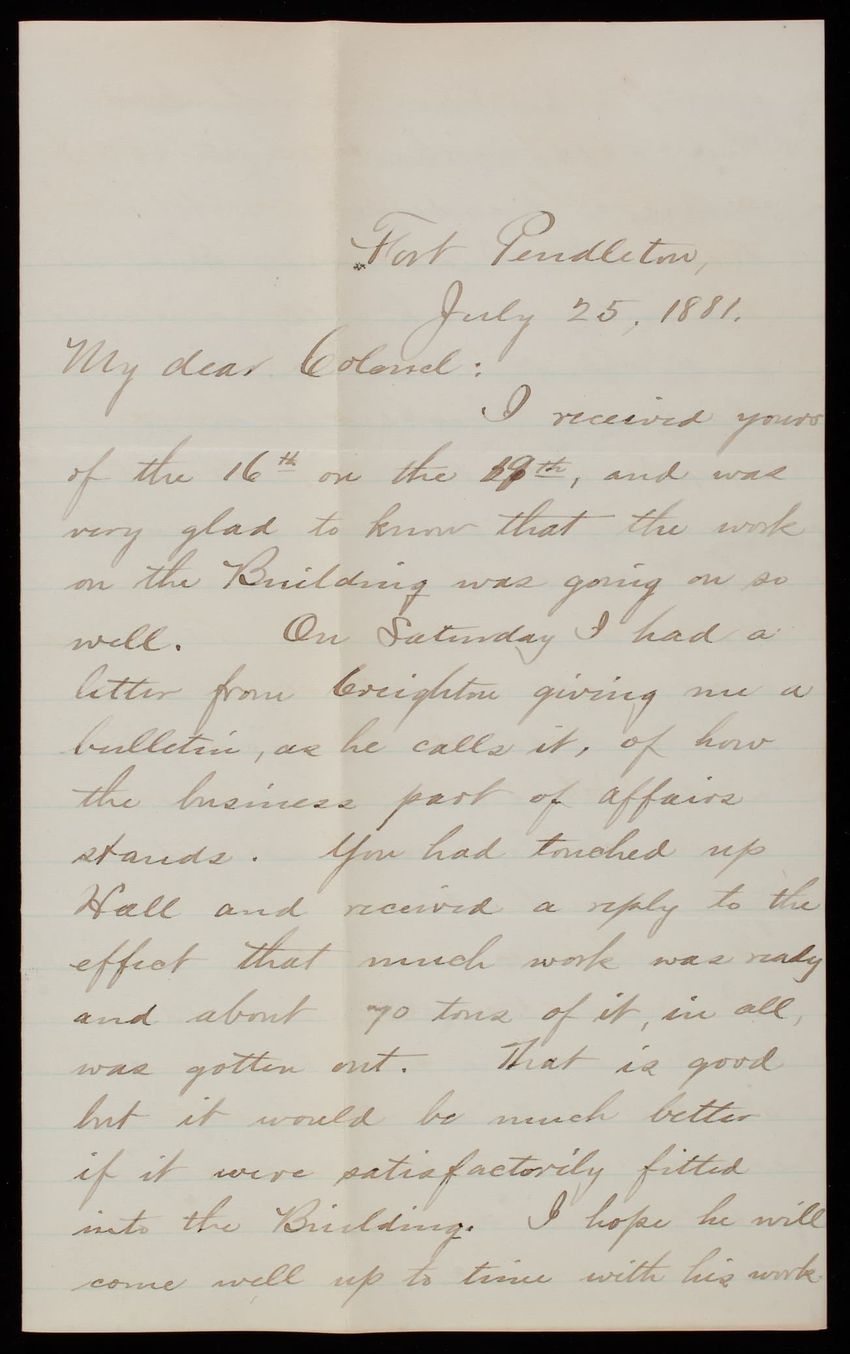 Fort Pendleton,
July 25, 1881.
My dear Colonel:
I received yours
of the 16th on the 19th, and was
very glad to know that the work
on the Building was going on so
well. On Saturday I had a
letter from Creighton giving me a
bulletin, as he calls it, of how
the business part of affairs
stands. You had touched up
Hall and received a reply to the
effect that much work was ready
and about 70 tons of it, in all,
was gotten out. That is good
but it would be much better
if it were satisfactorily fitted
into the Building. I hope he will
come well up to time with his work